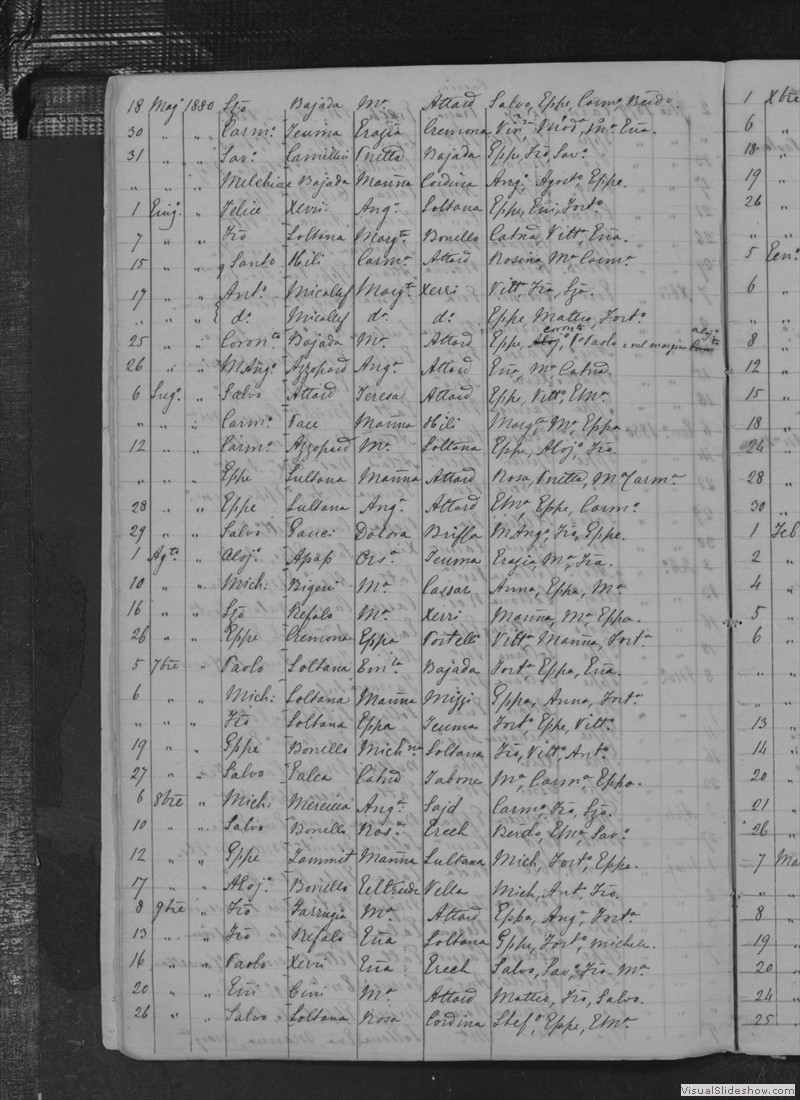 18 Magᵒ 1880 Lzo Bajada Mᵃ Attard Salvo, Eppe, Carmᵒ, Berdo.
30 " " Carmᵒ Teuma Eragia Cremona Virᵃ, Modᵃ, Mᵃ, Eña.
31 " " Savᵒ Camilleri Vnetta Bajada Eppe, Fro, Savᵒ
" " " Melchiore Bajada Manña Cordina Angᵒ, Agosto, Eppe.
1 Giugᵒ " Felice Xerri Angᵃ Soltana Eppe, Eni, Fortᵒ
7 " " Fro Soltana Margᵃ Bonello Catnã, Vittᵃ, Eña.
15 " " Santo Hili Carmᵃ Attard Rosina, Mᵃ Carmᵃ
17 " " Antᵒ Micalef Margᵗᵃ Xerri Vittᵒ, Fro, Lzo.
" " " dᵒ Micalef dᵃ dᵃ Eppe, Matteo, Fortᵒ
25 " " Coronᵗᵒ Bajada Mᵃ Attard Eppe, Paolo e nel margine
26 " " M.Angᵒ Azzopard Angᵃ Attard Eña, Mᵃ, Catnã.
6 Lugᵒ " Salvo Attard Teresa Attard Eppe, Vittᵒ, Emᵒ
" " " Carmᵒ Pace Manña Hili Margᵃ, Mᵃ, Eppa.
12 " " Carmᵒ Azzopard Mᵃ Soltana Eppe, Alojᵒ, Fro.
" " " Eppe Sultana Manña Attard Rosa, Vnetta, Mᵃ Carmᵃ
28 " " Eppe Sultana Angᵃ Attard Emᵒ, Eppe, Carmᵒ
29 " " Salvo Gauci Dolora Briffa M.Angᵒ, Fro, Eppe.
1 Agᵗᵒ " Alojᵒ Apap Orsᵃ Teuma Eragia, Mᵃ, Fra.
10 " " Mich: Bigeni Mᵃ Cassar Anna, Eppa, Mᵃ
16 " " Lzo Refalo Mᵃ Xerri Manña, Mᵃ, Eppa.
26 " " Eppe Cremona Eppa Portelli Vittᵃ, Manña, Fortᵃ
5 7bre " Paolo Soltana Emᵗᵃ Bajada Fortᵃ, Eppa, Eña.
6 " " Mich: Soltana Manña Mizzi Eppa, Anna, Fortᵃ
" " " Fro Soltana Eppa Teuma Fortᵒ, Eppe, Vittᵒ
19 " " Eppe Bonello Michⁿᵃ Soltana Fro, Vittᵒ, Antᵒ
27 " " Salvo Galea Catnã Tabone Mᵃ, Carmᵃ, Eppa.
6 8bre " Mich: Mercieca Angᵃ Sajd Carmᵒ, Fro, Lzo.
10 " " Salvo Bonello Rosᵃ Grech Berdo, Emᵒ, Savᵒ
12 " " Eppe Zammit Manña Sultana Mich, Fortᵒ, Eppe.
17 " " Alojᵒ Bonello Geltrude Vella Mich, Ant, Fro.
8 9bre " Fro Farrugia Mᵃ Attard Eppa, Angᵃ, Fortᵃ
13 " " Fro Refalo Eña Soltana Eppe, Fortᵒ, Michele.
16 " " Paolo Xerri Eña Grech Salvo, Savᵒ, Fro. Mᵃ
20 " " Eni Cini Mᵃ Attard Matteo, Fro, Salvo.
26 " " Salvo Soltana Rosa Cordina Stefᵒ, Eppe, Emᵒ
1 Xbre
6 "
18 "
19 "
26 "
" "
5 Genᵒ
6 "
8 "
12 "
15 "
18 "
24 "
28 "
30 "
1 Feb
2 "
4 "
5 "
6 "
" "
" "
13 "
14 "
20 "
21 "
26 "
7 Ma
" "
8 "
19 "
20 "
24 "
25 "
VisualSlideshow.com